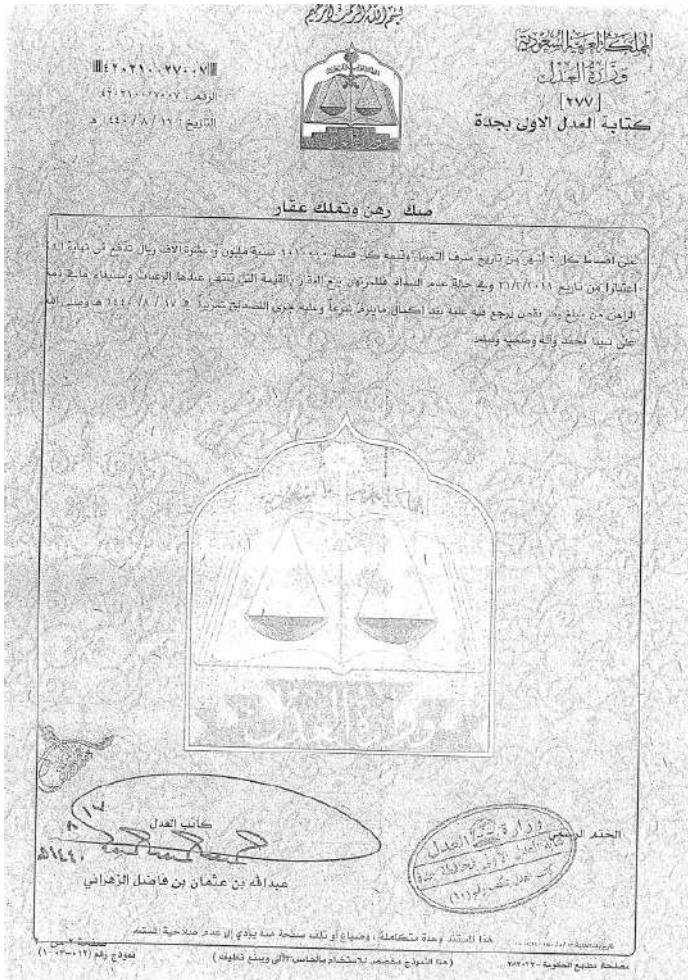 بسم الله الرحمن الرحيم
المملكة العربية السعودية
وزارة العدل
[٢٧٧]
كتابة العدل الاولى بجدة
٤٢٠٢١٠٠٢٧٠٠٧
الرقم : ٤٢٠٢١٠٠٢٧٠٠٧
التاريخ : ١٦ / ٨ / ١٤٤٠ هـ
صك رهن وتملك عقار
على اقساط كل ٦ أشهر من تاريخ صرف التمويل وقيمة كل قسط مليون وعشرة الاف ريال تدفع في نهاية
اعتبارا من تاريخ وفي حالة عدم السداد فللمرتهن بيع العقار بالقيمة التي تنتهي عندها الرغبات واستيفاء ما في ذمة
الراهن من مبلغ وما نقص يرجع فيه عليه بعد اكمال ما يلزم شرعاً وعليه جرى التصديق تحريراً في ١٧ / ٨ / ١٤٤٠ هـ وصلى الله
على نبينا محمد وآله وصحبه وسلم
وزارة العدل
كاتب العدل
١٧ / ٨ / ١٤٤٠هـ
عبدالله بن عثمان بن فاضل الزهراني
الختم الرسمي
وزارة العدل
هذا المستند وحدة متكاملة ، وضياع أو تلف صفحة منه يؤدي إلى عدم صلاحية المستند
مصلحة مطابع الحكومة
(هذا النموذج مخصص للاستخدام بالحاسب الآلي ويمنع تغليفه)
نموذج رقم (١٢-٠٣-٠١)
صفحة ٢ من